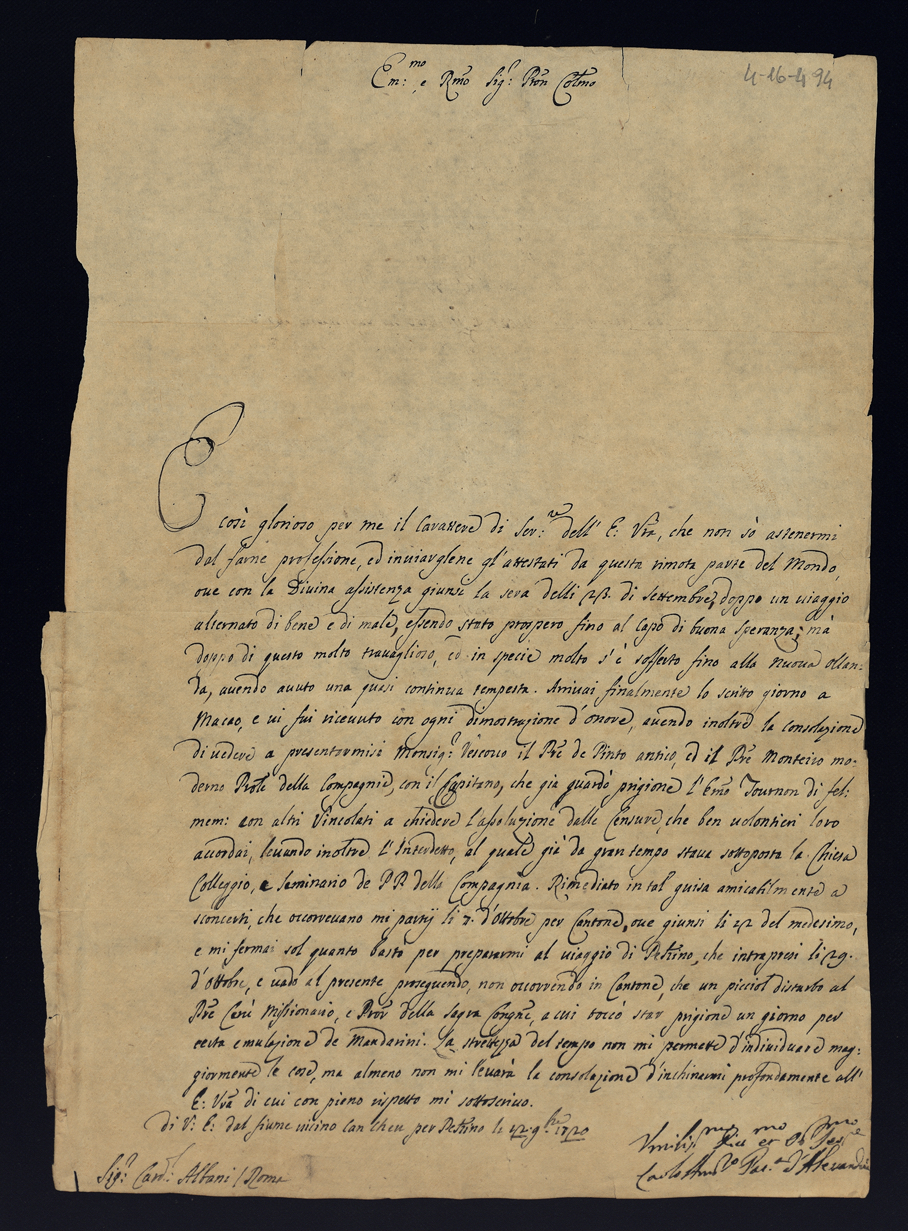 4-16-4 94
Em:mo e Rmo Sig:r Pron Colmo
E così glorioso per me il Carattere di Ser:re dell' E: Vra, che non sò astenermi
dal farne professione, ed inviarglene gl'attestati da questa rimota parte del Mondo,
ove con la Divina assistenza giunsi la sera delli 23. di Settembre, doppo un viaggio
alternato di bene e di male, essendo stato prospero fino al Capo di buona speranza; mà
doppo di questo molto travaglioso, ed in specie molto s'è sofferto fino alla Nuova Ollan-
da, avendo avuto una quasi continua tempesta. Arrivai finalmente lo scritto giorno a
Macao, e vi fui ricevuto con ogni dimostrazione d'onore, avendo inoltre la consolazione
di vedere a presentarmisi Monsig:r Vescovo il Pre de Pinto antico, ed il Pre Monteiro mo-
derno Prole della Compagnia, con il Capitano, che già guardò prigione l'Emo Tournon di fel:
mem: con altri Vincolati a chiedere l'assoluzione dalle Censure, che ben volontieri loro
accordai, levando inoltre l'Interdetto, al quale già da gran tempo stava sottoposta la Chiesa
Colleggio, e Seminario de PP. della Compagnia. Rimediato in tal guisa amicabilmente a
sconcerti, che occorrevano mi partij li 7. d'Ottobre per Cantone, ove giunsi li 12 del medesimo,
e mi fermai sol quanto bastò per prepararmi al viaggio di Pekino, che intrapresi li 29.
d'Ottobre, e vado al presente proseguendo, non occorrendo in Cantone, che un picciol disturbo al
Pre Cerù Missionario, e Pror della Sagra Congne, a cui toccò star prigione un giorno per
certa emulazione de Mandarini. La strettezza del tempo non mi permette d'individuare mag-
giormente le cose, ma almeno non mi leverà la consolazione d'inchinarmi profondamente all'
E: Vra di cui con pieno rispetto mi sottoscrivo.
di V: E: dal fiume vicino Can cheu per Pekino li 12. 9bre 1720
Umiliss:mo
Carlo Amb:o Pat:a d'Alessandria
Sig:r Card: Albani / Roma